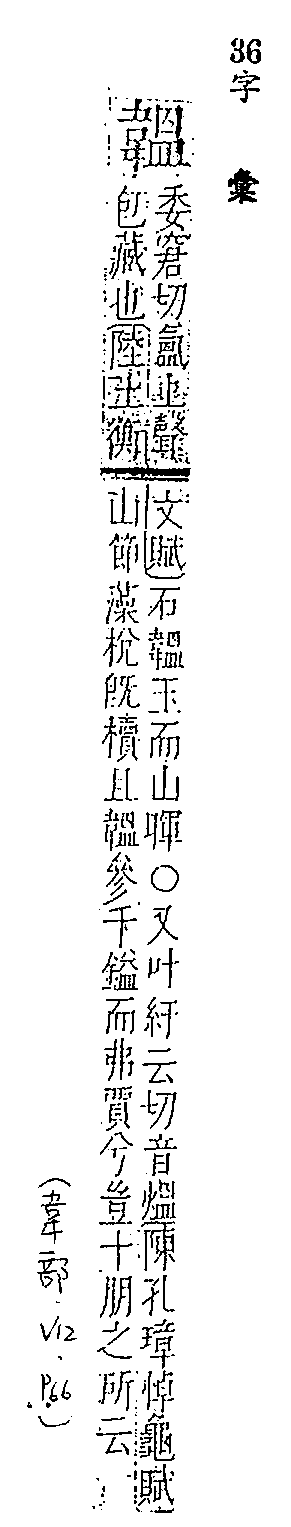 36
字彙
韞
委窘切氳上聲
包藏也陸士衡
文賦石韞玉而山暉○又叶紆云切音熅陳孔璋悼龜賦
山節藻梲既櫝且韞參千鎰而弗賈兮豈十朋之所云
(韋部.V12.P.66)